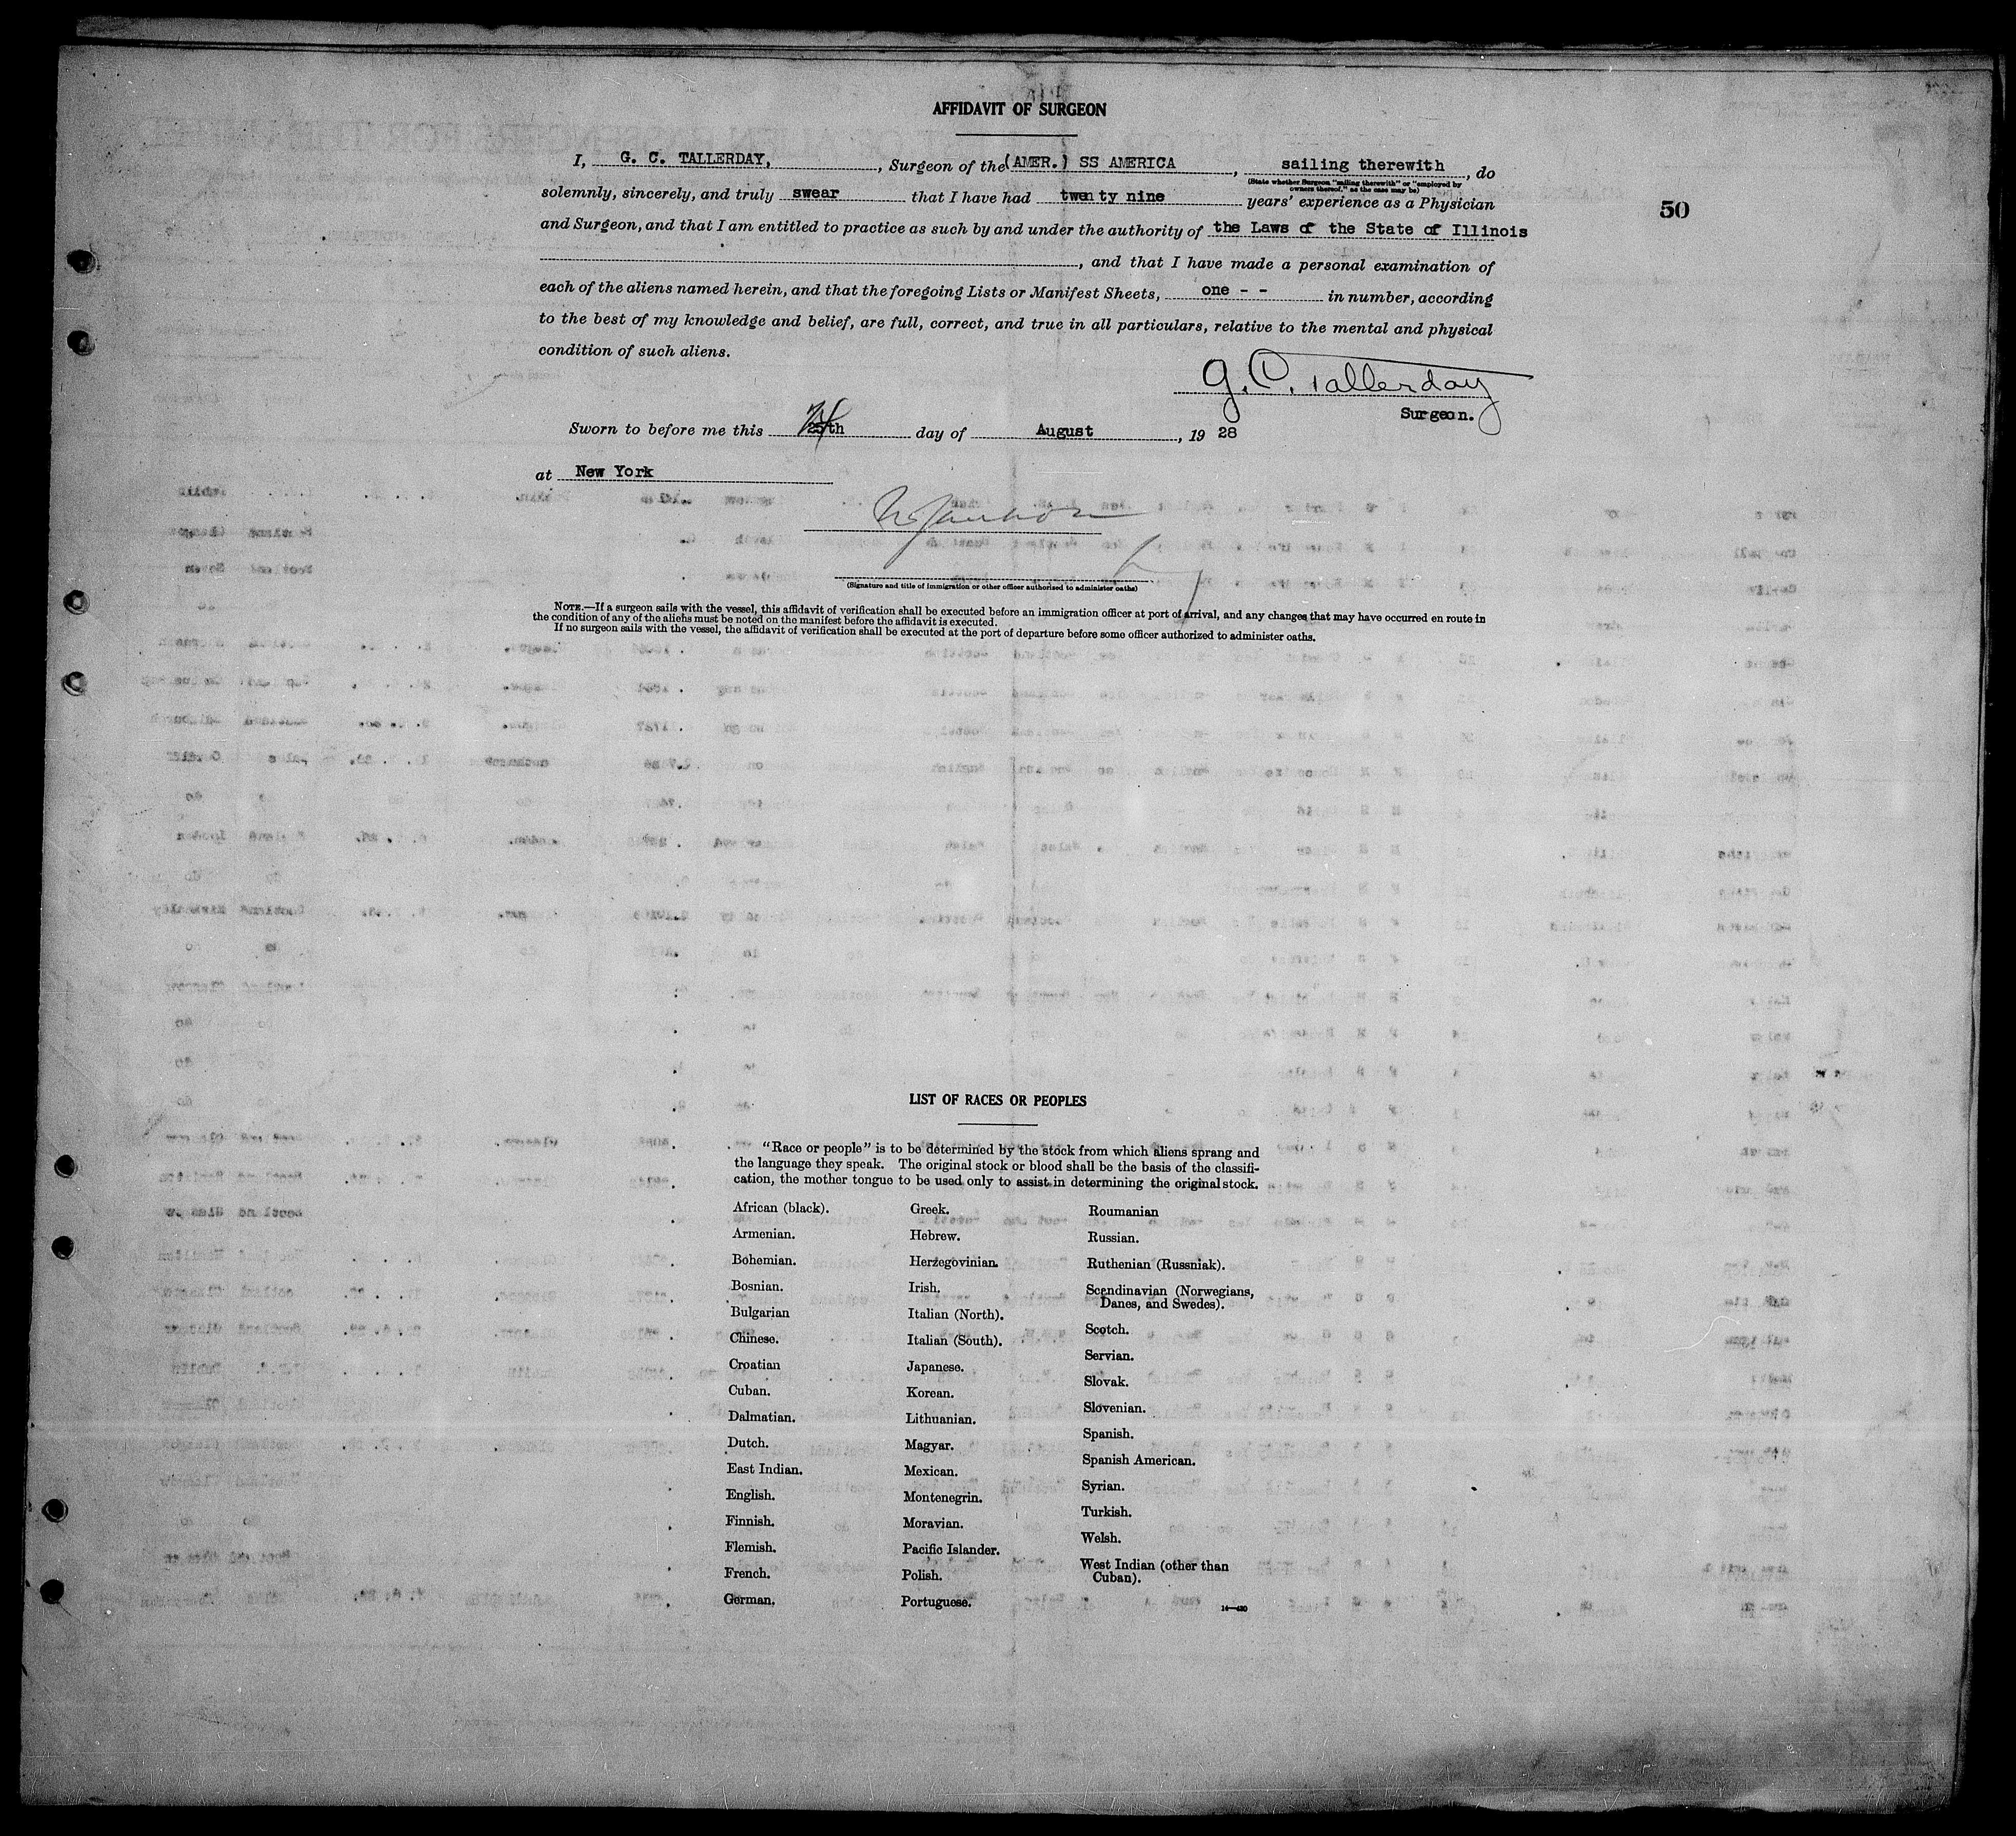 AFFIDAVIT OF SURGEON
I, G. C. TALLERDAY, , Surgeon of the (AMER.) SS AMERICA , sailing therewith , do
(State whether Surgeon "sailing therewith" or "employed by
owners thereof," as the case may be)
solemnly, sincerely, and truly swear that I have had twenty nine years' experience as a Physician
50
and Surgeon, and that I am entitled to practice as such by and under the authority of the Laws of the State of Illinois
, and that I have made a personal examination of
each of the aliens named herein, and that the foregoing Lists or Manifest Sheets, one - - in number, according
to the best of my knowledge and belief, are full, correct, and true in all particulars, relative to the mental and physical
condition of such aliens.
G. C. Tallerday
Surgeon.
Sworn to before me this 25th day of August , 19 28
at New York
(Signature and title of immigration or other officer authorized to administer oaths)
NOTE.—If a surgeon sails with the vessel, this affidavit of verification shall be executed before an immigration officer at port of arrival, and any changes that may have occurred en route in
the condition of any of the aliens must be noted on the manifest before the affidavit is executed.
If no surgeon sails with the vessel, the affidavit of verification shall be executed at the port of departure before some officer authorized to administer oaths.
LIST OF RACES OR PEOPLES
"Race or people" is to be determined by the stock from which aliens sprang and
the language they speak. The original stock or blood shall be the basis of the classifi-
cation, the mother tongue to be used only to assist in determining the original stock.
African (black).
Armenian.
Bohemian.
Bosnian.
Bulgarian
Chinese.
Croatian
Cuban.
Dalmatian.
Dutch.
East Indian.
English.
Finnish.
Flemish.
French.
German.
Greek.
Hebrew.
Herzegovinian.
Irish.
Italian (North).
Italian (South).
Japanese.
Korean.
Lithuanian.
Magyar.
Mexican.
Montenegrin.
Moravian.
Pacific Islander.
Polish.
Portuguese.
Roumanian
Russian.
Ruthenian (Russniak).
Scandinavian (Norwegians,
Danes, and Swedes).
Scotch.
Servian.
Slovak.
Slovenian.
Spanish.
Spanish American.
Syrian.
Turkish.
Welsh.
West Indian (other than
Cuban).
14—430